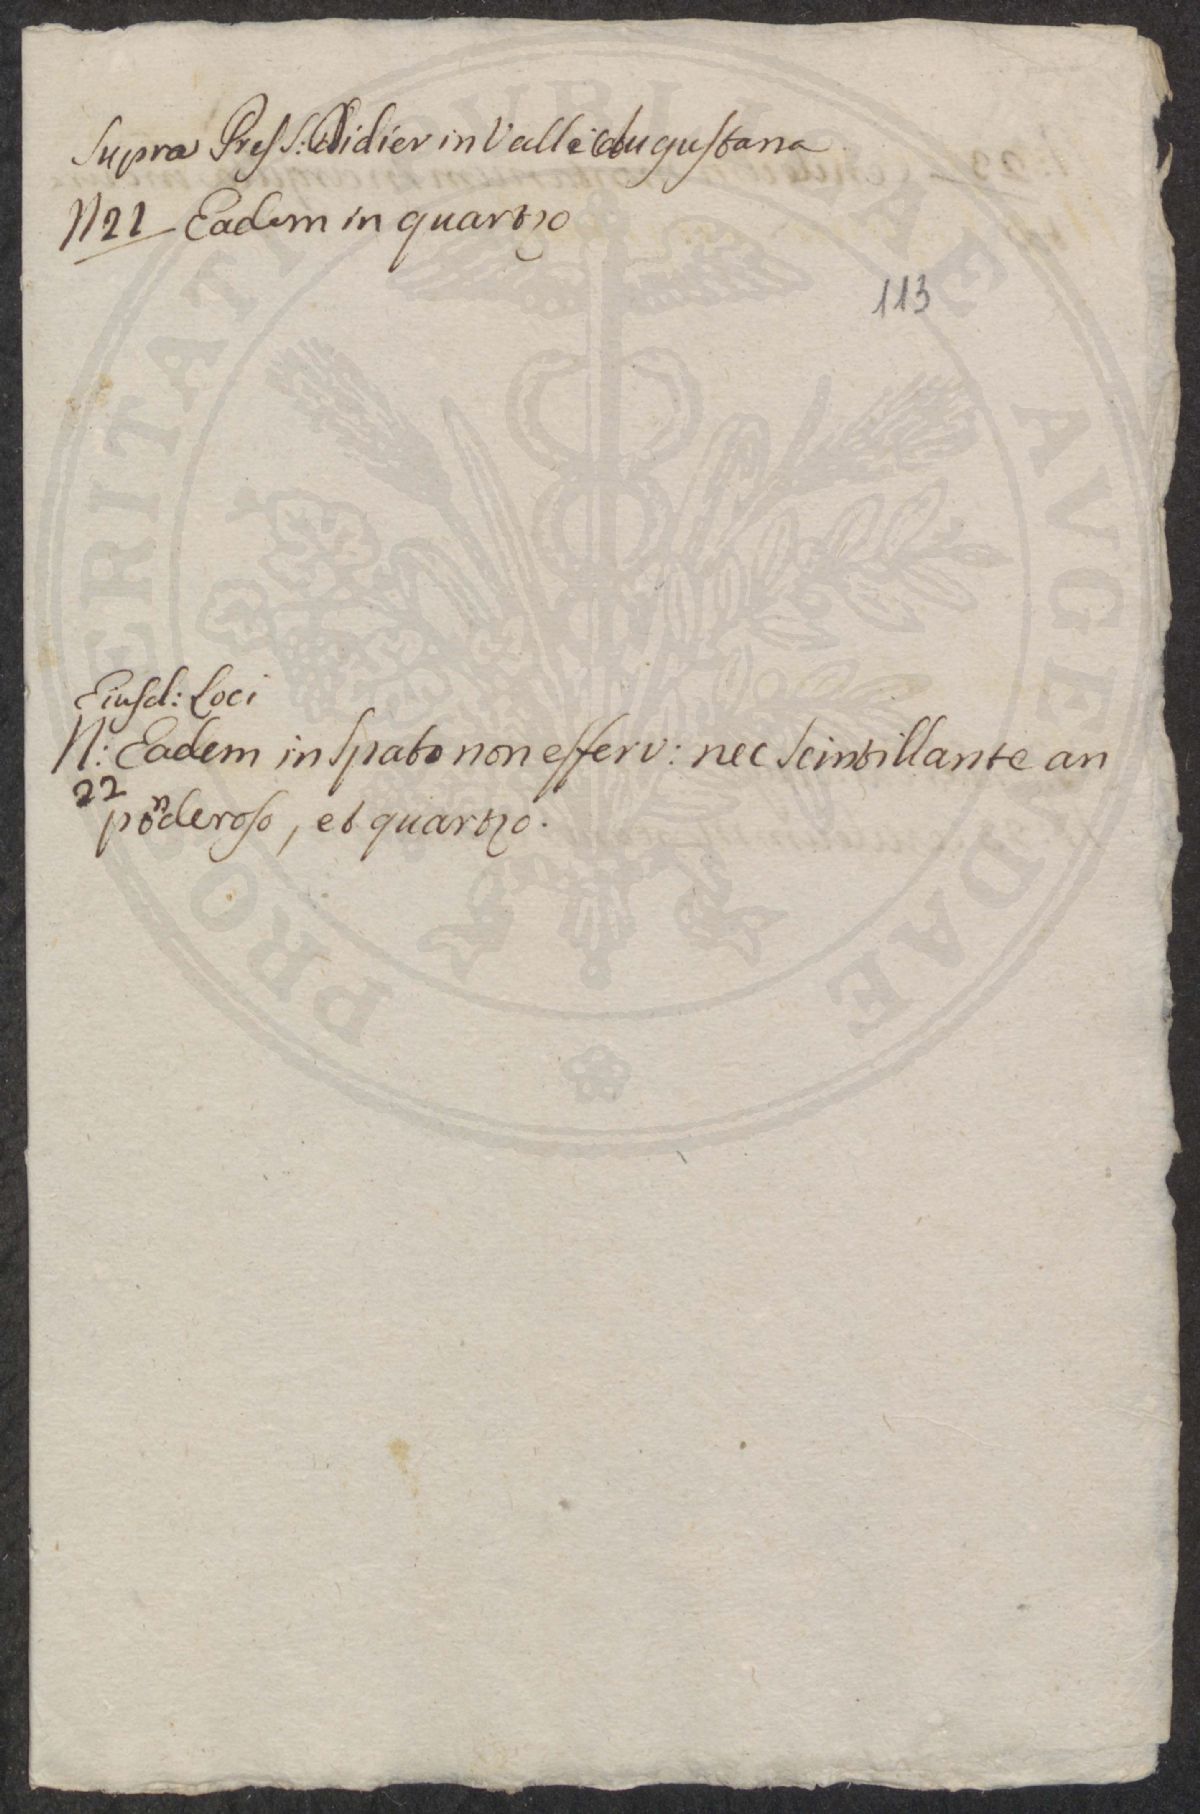 Supra Pres S: Didier in Valle Augustana
N 21 Eadem in quartzo
113
Eiusd: Loci
N: Eadem in spato non efferv: nec scintillante an
22
ponderoso, et quartzo.
PROSPERITATI PVBLICAE AVGENDAE